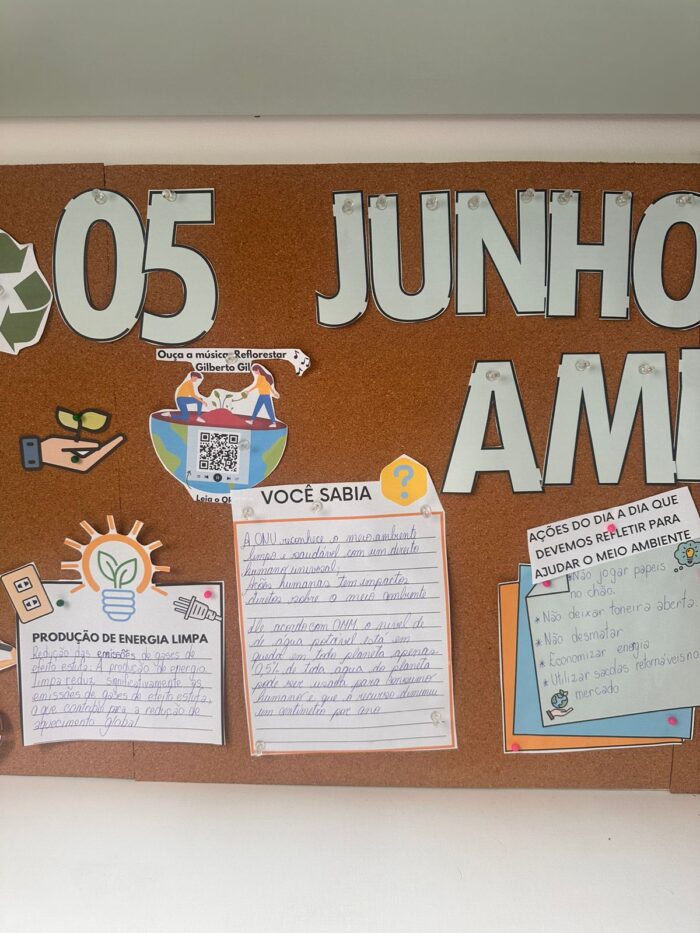 05 JUNHO
AM
Ouça a música: Reflorestar
Gilberto Gil
Leia o
VOCÊ SABIA
?
A ONU reconhece o meio ambiente
limpo e saudável com um direito
humano universal;
Ações humanas tem impactos
diretos sobre o meio ambiente
De acordo com OMM o nível de
de água potável está em
queda em todo planeta apenas
0,5% de toda água do planeta
pode ser usada para consumo
humano e que o recurso diminui
um centímetro por ano
PRODUÇÃO DE ENERGIA LIMPA
Redução das emissões de gases de
efeito estufa: A produção de energia
limpa reduz significativamente as
emissões de gases de efeito estufa,
o que contribui para a redução de
aquecimento global
AÇÕES DO DIA A DIA QUE
DEVEMOS REFLETIR PARA
AJUDAR O MEIO AMBIENTE
* Não jogar papeis
no chão.
* Não deixar toneira aberta
* Não desmatar
* Economizar energia
* Utilizar sacolas retornáveis no
mercado